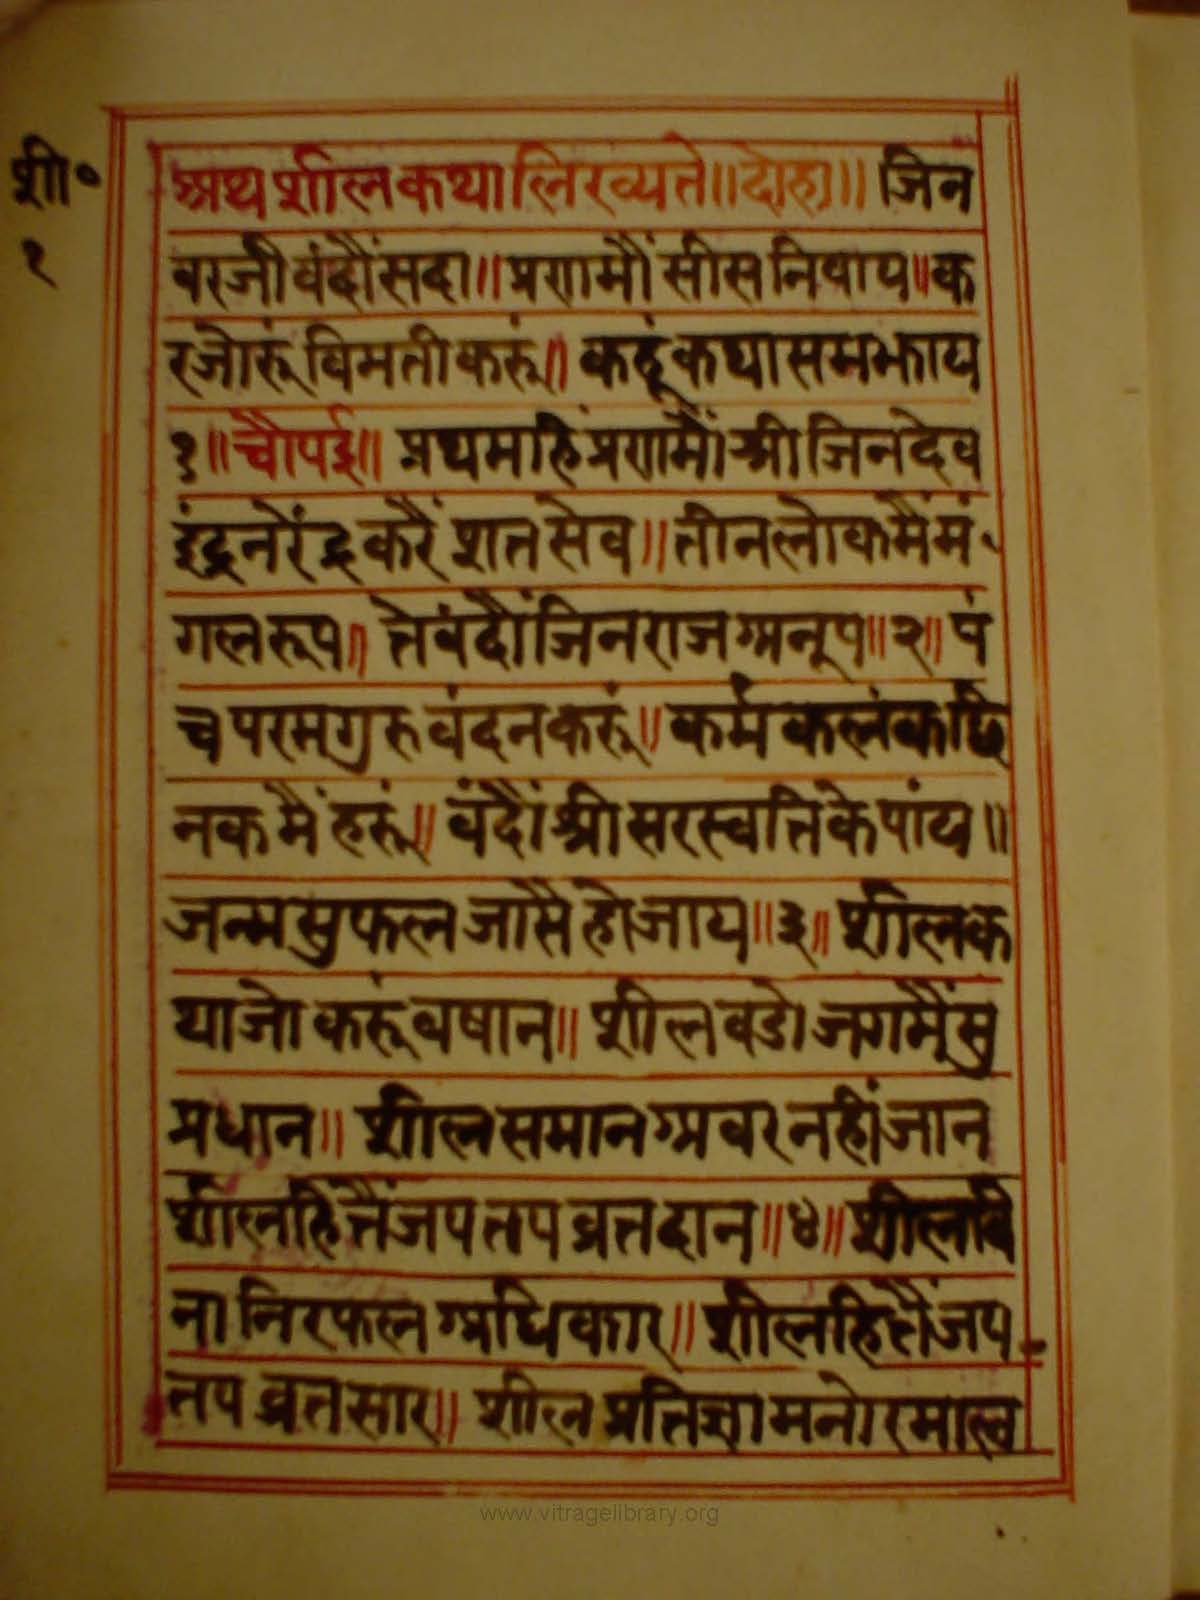 शी॰
१
अथ शील कथा लिख्यते॥दोहा॥ जिन
वरजी वंदौं सदा॥ प्रणमौं सीस निवाय॥क
रजोरूं विमती करूं॥ कहूं कथा समझाय
१॥चौपई॥ प्रथमहिं प्रणमौं श्री जिनदेव
इंद्र नरेंद्र करैं शत सेव॥ तीन लोक मैं मं
गल रूप॥ ते वंदौं जिनराज अनूप॥२॥ पं
च परम गुरु वंदन करूं॥ कर्म कलंक छि
नक मैं हरूं॥ वंदौं श्री सरस्वति के पांय॥
जन्म सुफल जासै हो जाय॥३॥ शील क
था जो करूं वषान॥ शील वडो जग मैं सु
प्रधान॥ शील समान अवर नहीं जान
शीलहि तैं जप तप व्रत दान॥४॥ शील वि
ना निरफल अधिकार॥ शीलहि तैं जप
तप व्रत सार॥ शील प्रतिज्ञा मनोरमा
www.vitragelibrary.org